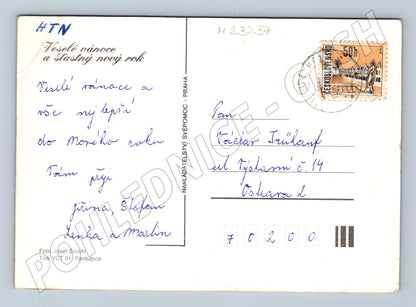 HTN
M 23237
Veselé vánoce
a šťastný nový rok
Veselé vánoce a
vše nejlepší
do Nového roku
Vám přeje
Jiřina, Štefan
Lenka a Martin
Foto Josef
Tisk VČT 01, Pardubice
NAKLADATELSTVÍ SVÉPOMOC - PRAHA
ČESKOSLOVENSKO
50h
Pan
Václav Trühauf
ul Výstavní č. 14
Ostrava 2
7 0 2 0 0
POHLEDNICE - CZECH